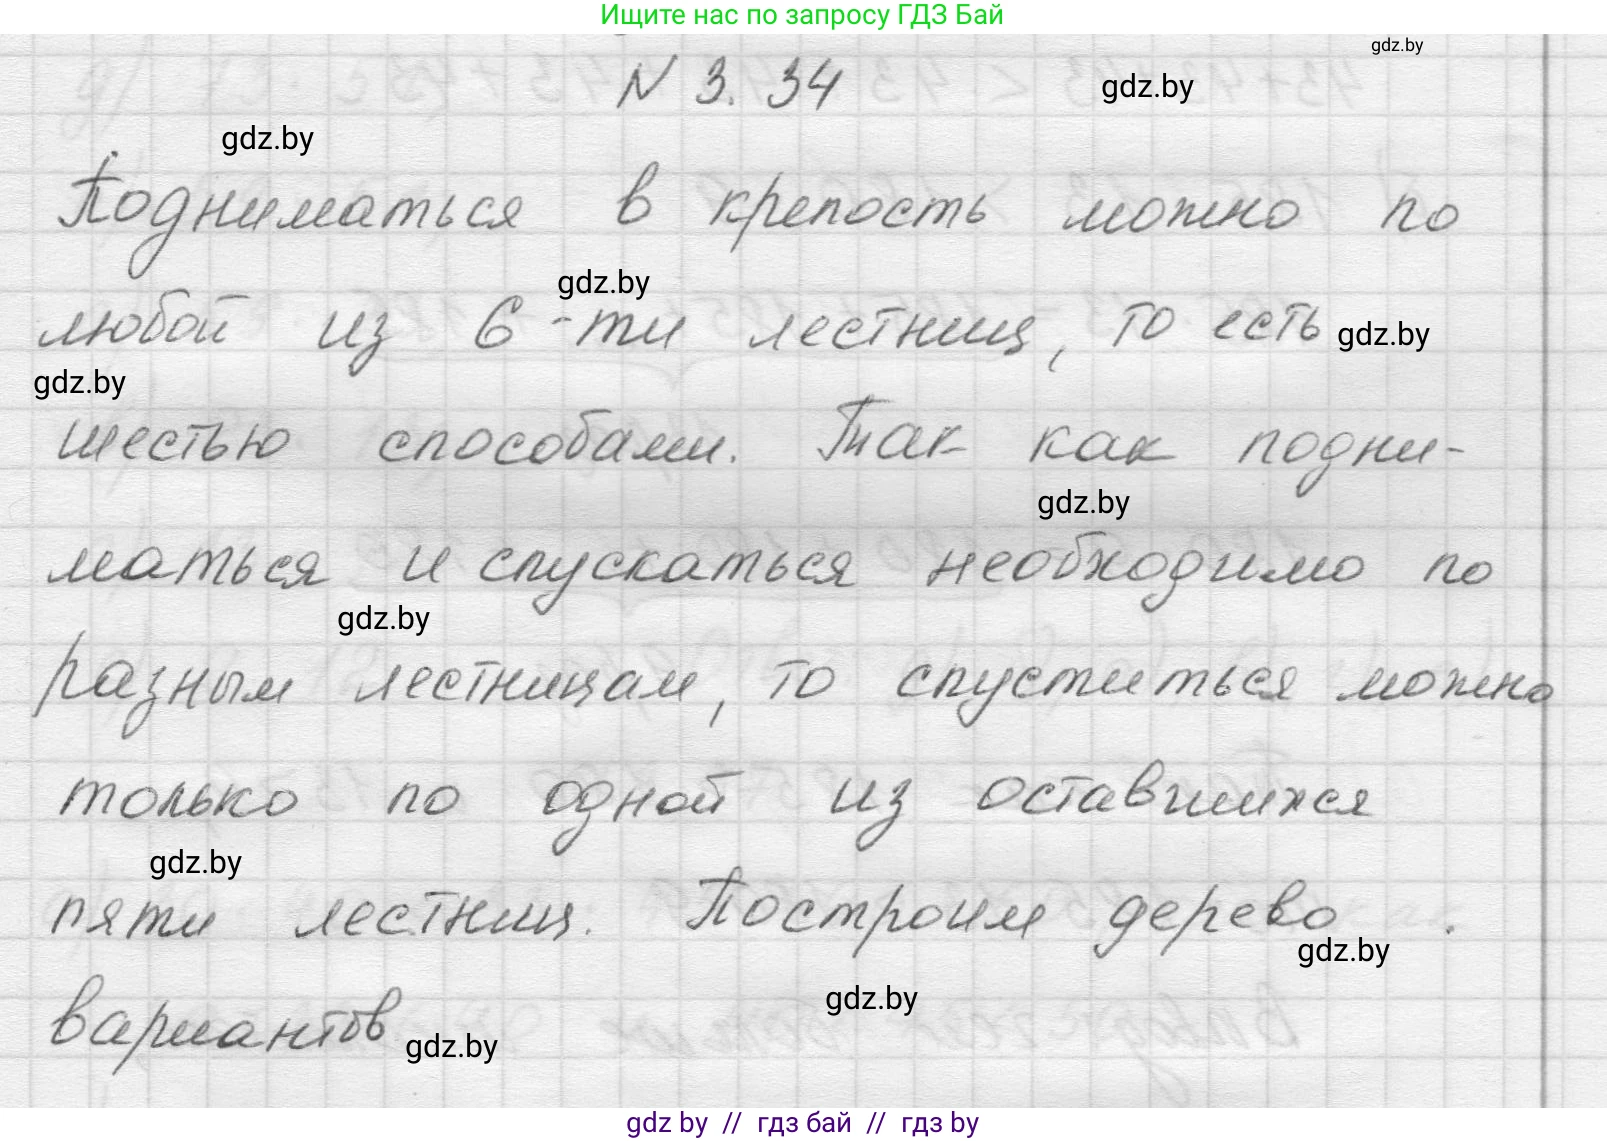 Ищите нас по запросу ГДЗ Бай
gdz.by
N 3.34
gdz.by
gdz.by
Подниматься в крепость можно по
gdz.by
любой из 6-ти лестниц, то есть
gdz.by
gdz.by
шестью способами. Так как подни-
gdz.by
маться и спускаться необходимо по
gdz.by
разным лестницам, то спуститься можно
только по одной из оставшихся
gdz.by
пяти лестниц. Построим дерево .
gdz.by
gdz.by
вариантов
gdz.by
gdz by // гдз бай // гдз by